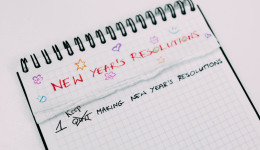 NEW YEAR'S RESOLUTIONS
KEEP
1 QUIT MAKING NEW YEAR'S RESOLUTIONS